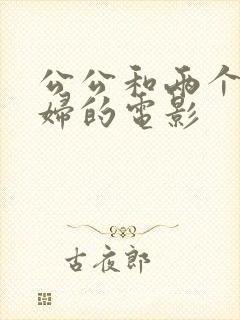 公公和两个
婦的电影
古夜郎